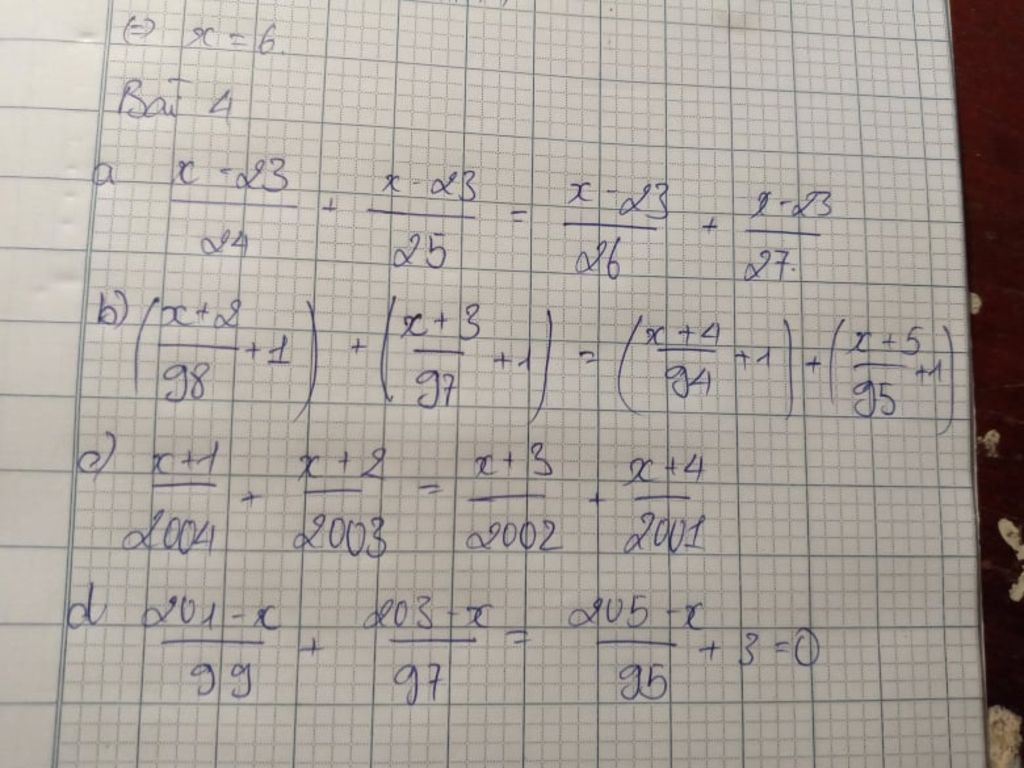 ⇔ x = 6.
Bài 4
a x - 23/24 + x - 23/25 = x - 23/26 + x - 23/27.
b) (x + 2/98 + 1) + (x + 3/97 + 1) = (x + 4/94 + 1) + (x + 5/95 + 1)
c) x + 1/2004 + x + 2/2003 = x + 3/2002 + x + 4/2001
d 201 - x/99 + 203 - x/97 = 205 - x/95 + 3 = 0